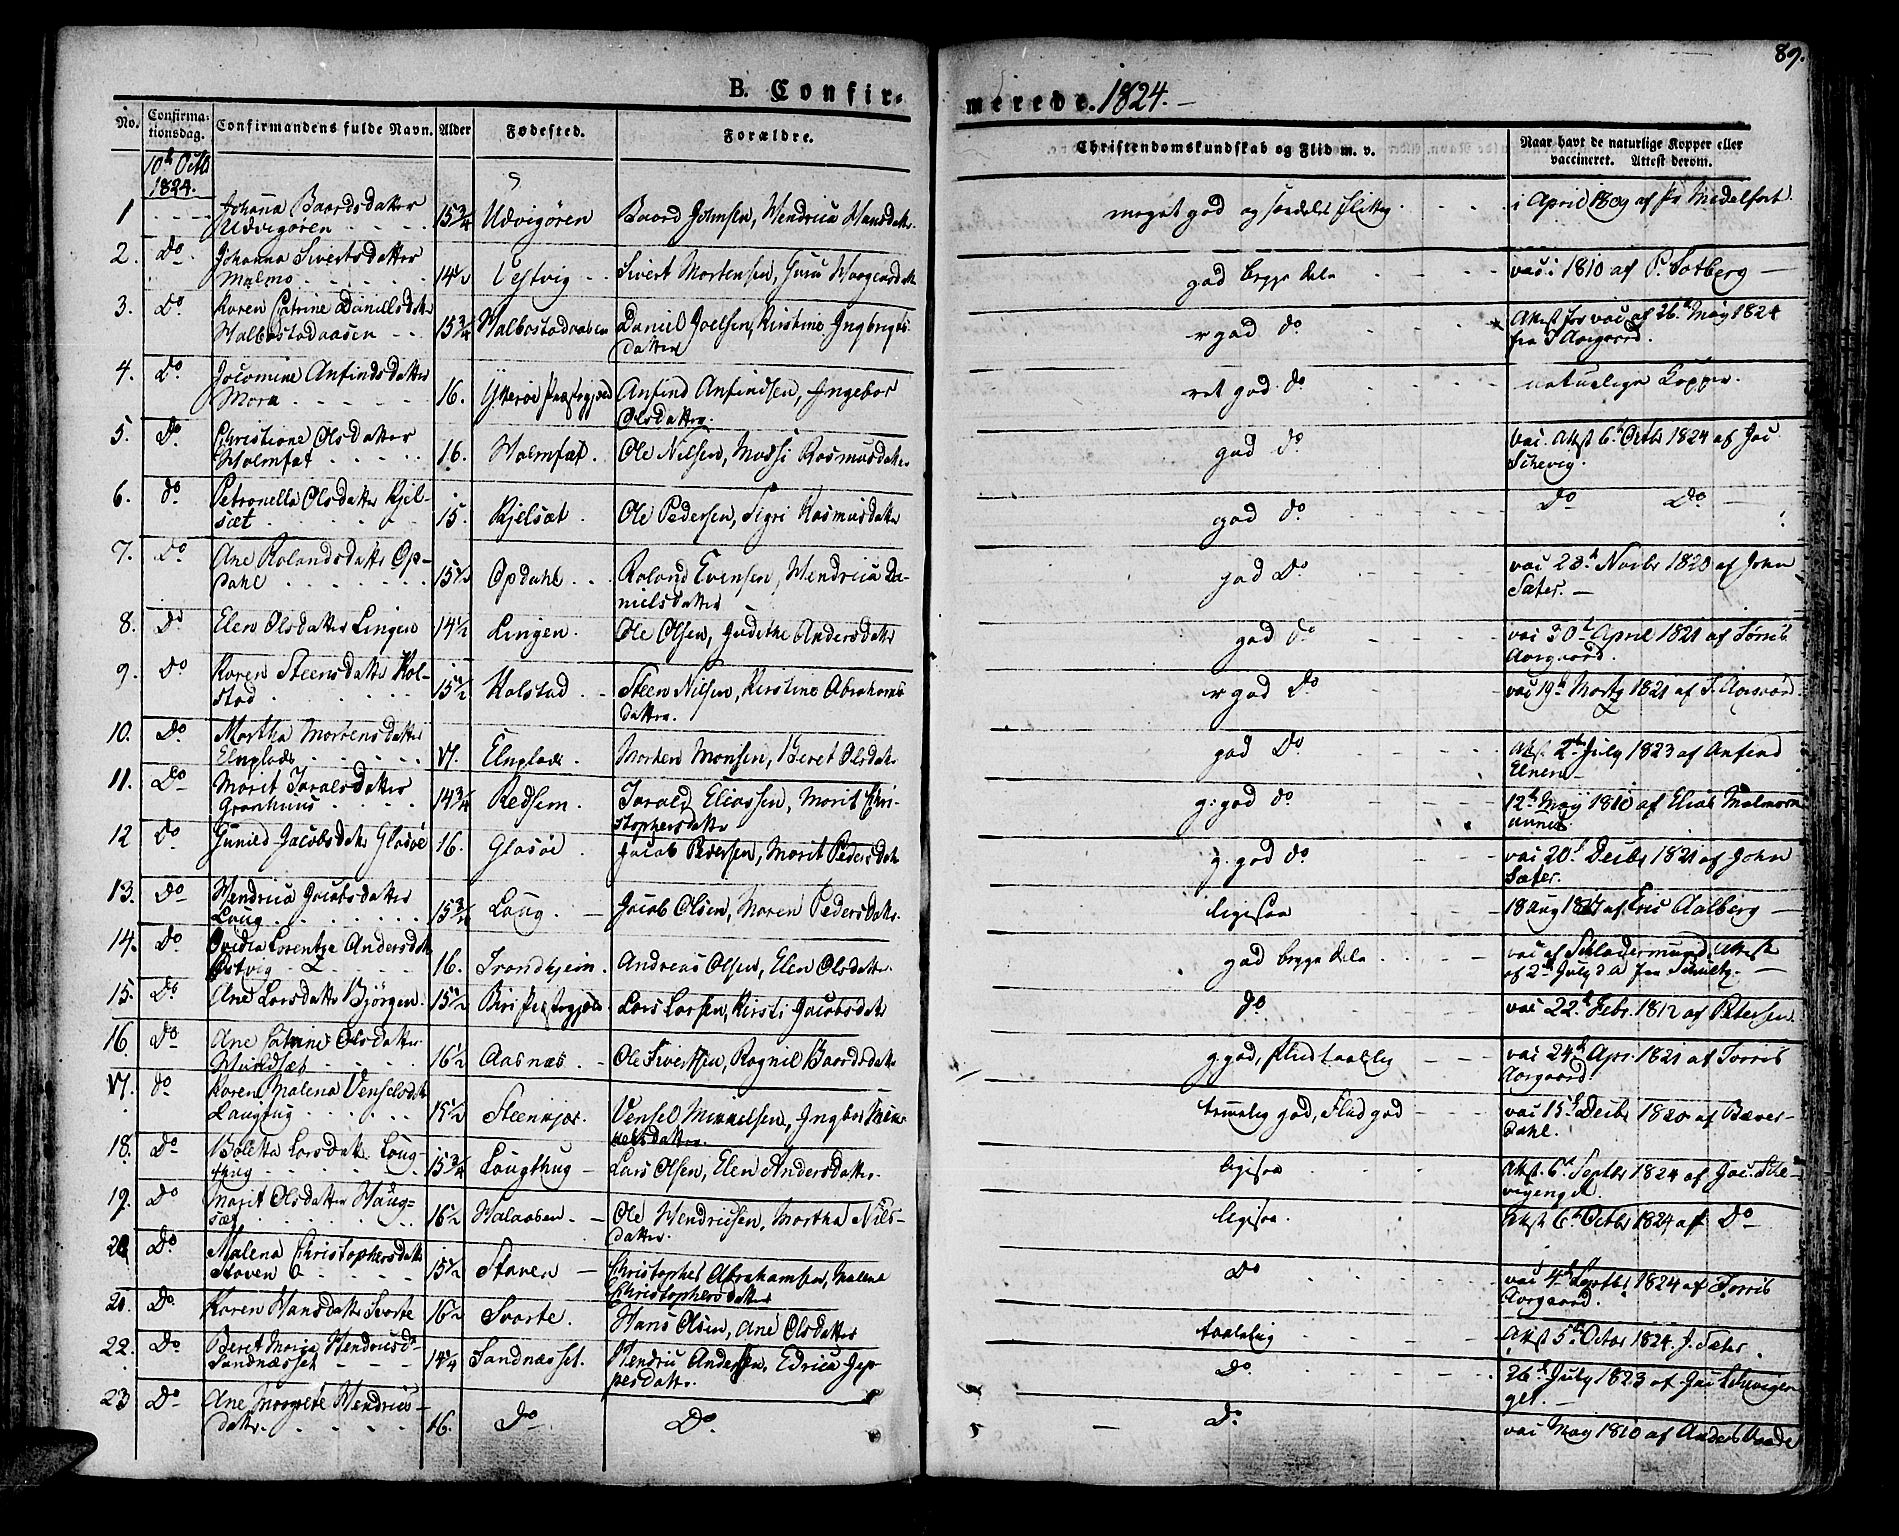 89.
B. Confir-
merede. 1824.
No. Confirmationsdag. Confirmandens fulde Navn. Alder Fødested. Forældre. Christendomskundskab og Flid m. v. Naar havt de naturlige Kopper eller vaccineret. Attest derom.
10d Octb 1824.
1 Johana Baardsdatter Udvigören 15 3/4 Udvigören Baard Johnsen, Hendrica Hansdatter meget god og særdeles flittig i April 1809 af Pr Medelfart
2. Do Johanna Sivertsdatter Malmo 14 1/2 Vestvig Sivert Mortensen, Guru god begge dele vac i 1810 af P. Solberg
3. Do Karen Catrine Danielsdatter Halbostadaasen 15 3/4 Halbostadaasen Daniel Joelsen, Kirstine Ingbrigtsdatter r god do Attest for vac af 26 May 1824 fra T Aargaard.
4. Do Jocomine Anfindsdatter Mora 16. Ytterøe Præstegjeld Anfind Anfindsen, Ingebor Olsdatter ret god do naturlige Kopper.
5. Do Christiane Olsdatter Holmfæt 16. Holmfæt Ole Nilsen, Massi Rasmusdatter god do Vac. Attst 6 Octbr 1824 af Jac. Schevig.
6. do Petronella Olsdatter Kjelsæt 15. Kjelsæt Ole Pedersen, Sigri Rasmusdatter god do Do Do
7. Do Ane Rolandsdatter Opdahl 15 1/2 Opdahl Roland Evensen, Hendrica Danielsdatter god Do vac 28 Novbr 1820 af John Sæter.
8. Do Elen Olsdatter Lingen 14 1/2 Lingen. Ole Olsen, Judithe Andersdatter god do vac 30 April 1821 af Torris Aargaard.
9. Do Karen Steensdatter Holstad 15 1/2 Holstad Steen Nilsen, Kirstine Abrahamsdatter r god Do vac 19 Marty 1821 af T. Aargaard
10. Do Martha Mortensdatter Elnplads 17. Elnplads Morten Monsen, Beret Olsdatter god Do Attst 2 July 1823 af Anfind Elnen
11. Do Marit Taralsdatter Granhuus 14 3/4 Redsem. Tarald Eliassen, Marit Christophersdatter g: god do 12 May 1810 af Elias
12 Do Gunild Jacobsdatter Glasøe 16. Glasøe Jacob Pedersen, Marit Pedersdatter g. god do vac 20 Decbr 1821 af John Sæter.
13. Do Hendrica Jacobsdatter Laug 15 3/4 Laug. Jacob Olsen, Maren Pedersdatter ligesaa 18 Aug af Eric Aalberg
14. Do Ovidia Lorentze Andersdatter Østvig 16. Trondhjem Andreas Olsen, Elen Olsdatter god begge dele vac af Schladermund, Attest af 2 July d a fra Schultz.
15. Do Ane Larsdatter Bjørgen 15 1/2 Biri Præstegjeld Lars Larsen, Kirsti Jacobsdatter do vac 22 Febr. 1812 af Petersen
16. Do Ane Catrine Olsdatter 16 1/2 Aasnæs Ole Sivertsen, Rognil Baardsdatter g god, flid taalelig vac 24 Apr 1821 af Torris Aargaard
17. do Karen Malena Venselsdatter Laugtug 15 1/2 Steenkjær. Vensel Mikkelsen, Ingbor Mikkelsdatter temmelig god, Flid god vac 15 Decbr 1820 af Bæverdahl.
18. Do Boletta Larsdatter Laugthug 15 3/4 Laugthug Lars Olsen, Elen Andersdatter ligesaa Attst. 6 Septbr 1824 af Jac. Schevigengel.
19. Do Marit Olsdatter Haugsæt 16 1/2 Halaasen Ole Hendricsen, Martha Nilsdatter ligesaa. Attst 6 Octbr 1824 af Do
20 Do. Malena Christophersdatter Staven 15 1/2 Staven Christopher Abrahamsen, Malena Christophersdatter Do vac 4 Septbr 1824 af Torris Aargaard.
21. Do. Karen Hansdatter Svarte 16 1/2 Svarte. Hans Olsen, Ane Olsdatter taalelig Attst 5 Octbr 1824. J. Sæter.
22. Do Beret Maria Hendricsd Sandnæsset 14 1/4 Sandnæsset. Hendric Andersen, Edrica Jeppesdatter Do. 26 July 1823 af Jac Schevigengel.
23 Do Ane Margrete Hendricsdatter 16. Do Do Do. vac May 1810 af Anders